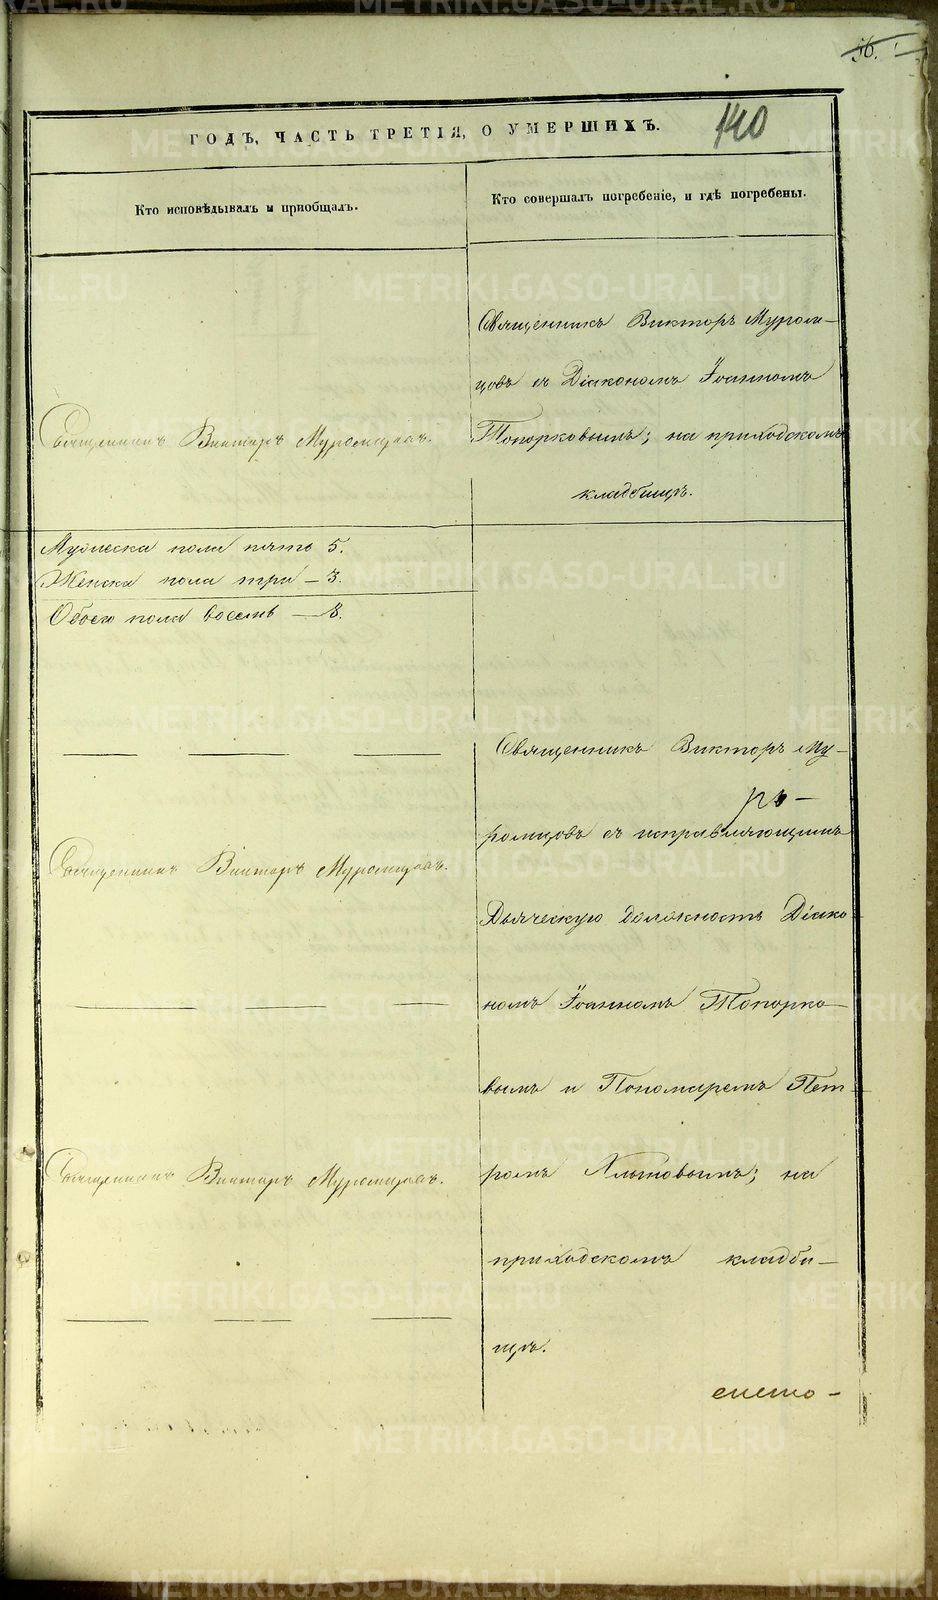 56.
140
ГОДЪ, ЧАСТЬ ТРЕТІЯ, О УМЕРШИХЪ.
Кто исповѣдывалъ и пріобщалъ.
Кто совершалъ погребеніе, и гдѣ погребены.
Священникъ Викторъ Муром-
цовъ съ Діакономъ Іоанномъ
Священникъ Викторъ Муромцовъ.
Топорковымъ; на приходскомъ
кладбищѣ.
Мужеска пола пять 5.
Женска пола три – 3.
Обоего пола восемь – 8.
Священникъ Викторъ Му-
ромцовъ съ исправляющимъ
Священникъ Викторъ Муромцовъ.
Дьяческую должность Діако-
номъ Іоанномъ Топорко-
вымъ и Пономаремъ Пет-
Священникъ Викторъ Муромцовъ.
ромъ Хлыновымъ; на
приходскомъ кладби-
щѣ.
METRIKI.GASO-URAL.RU